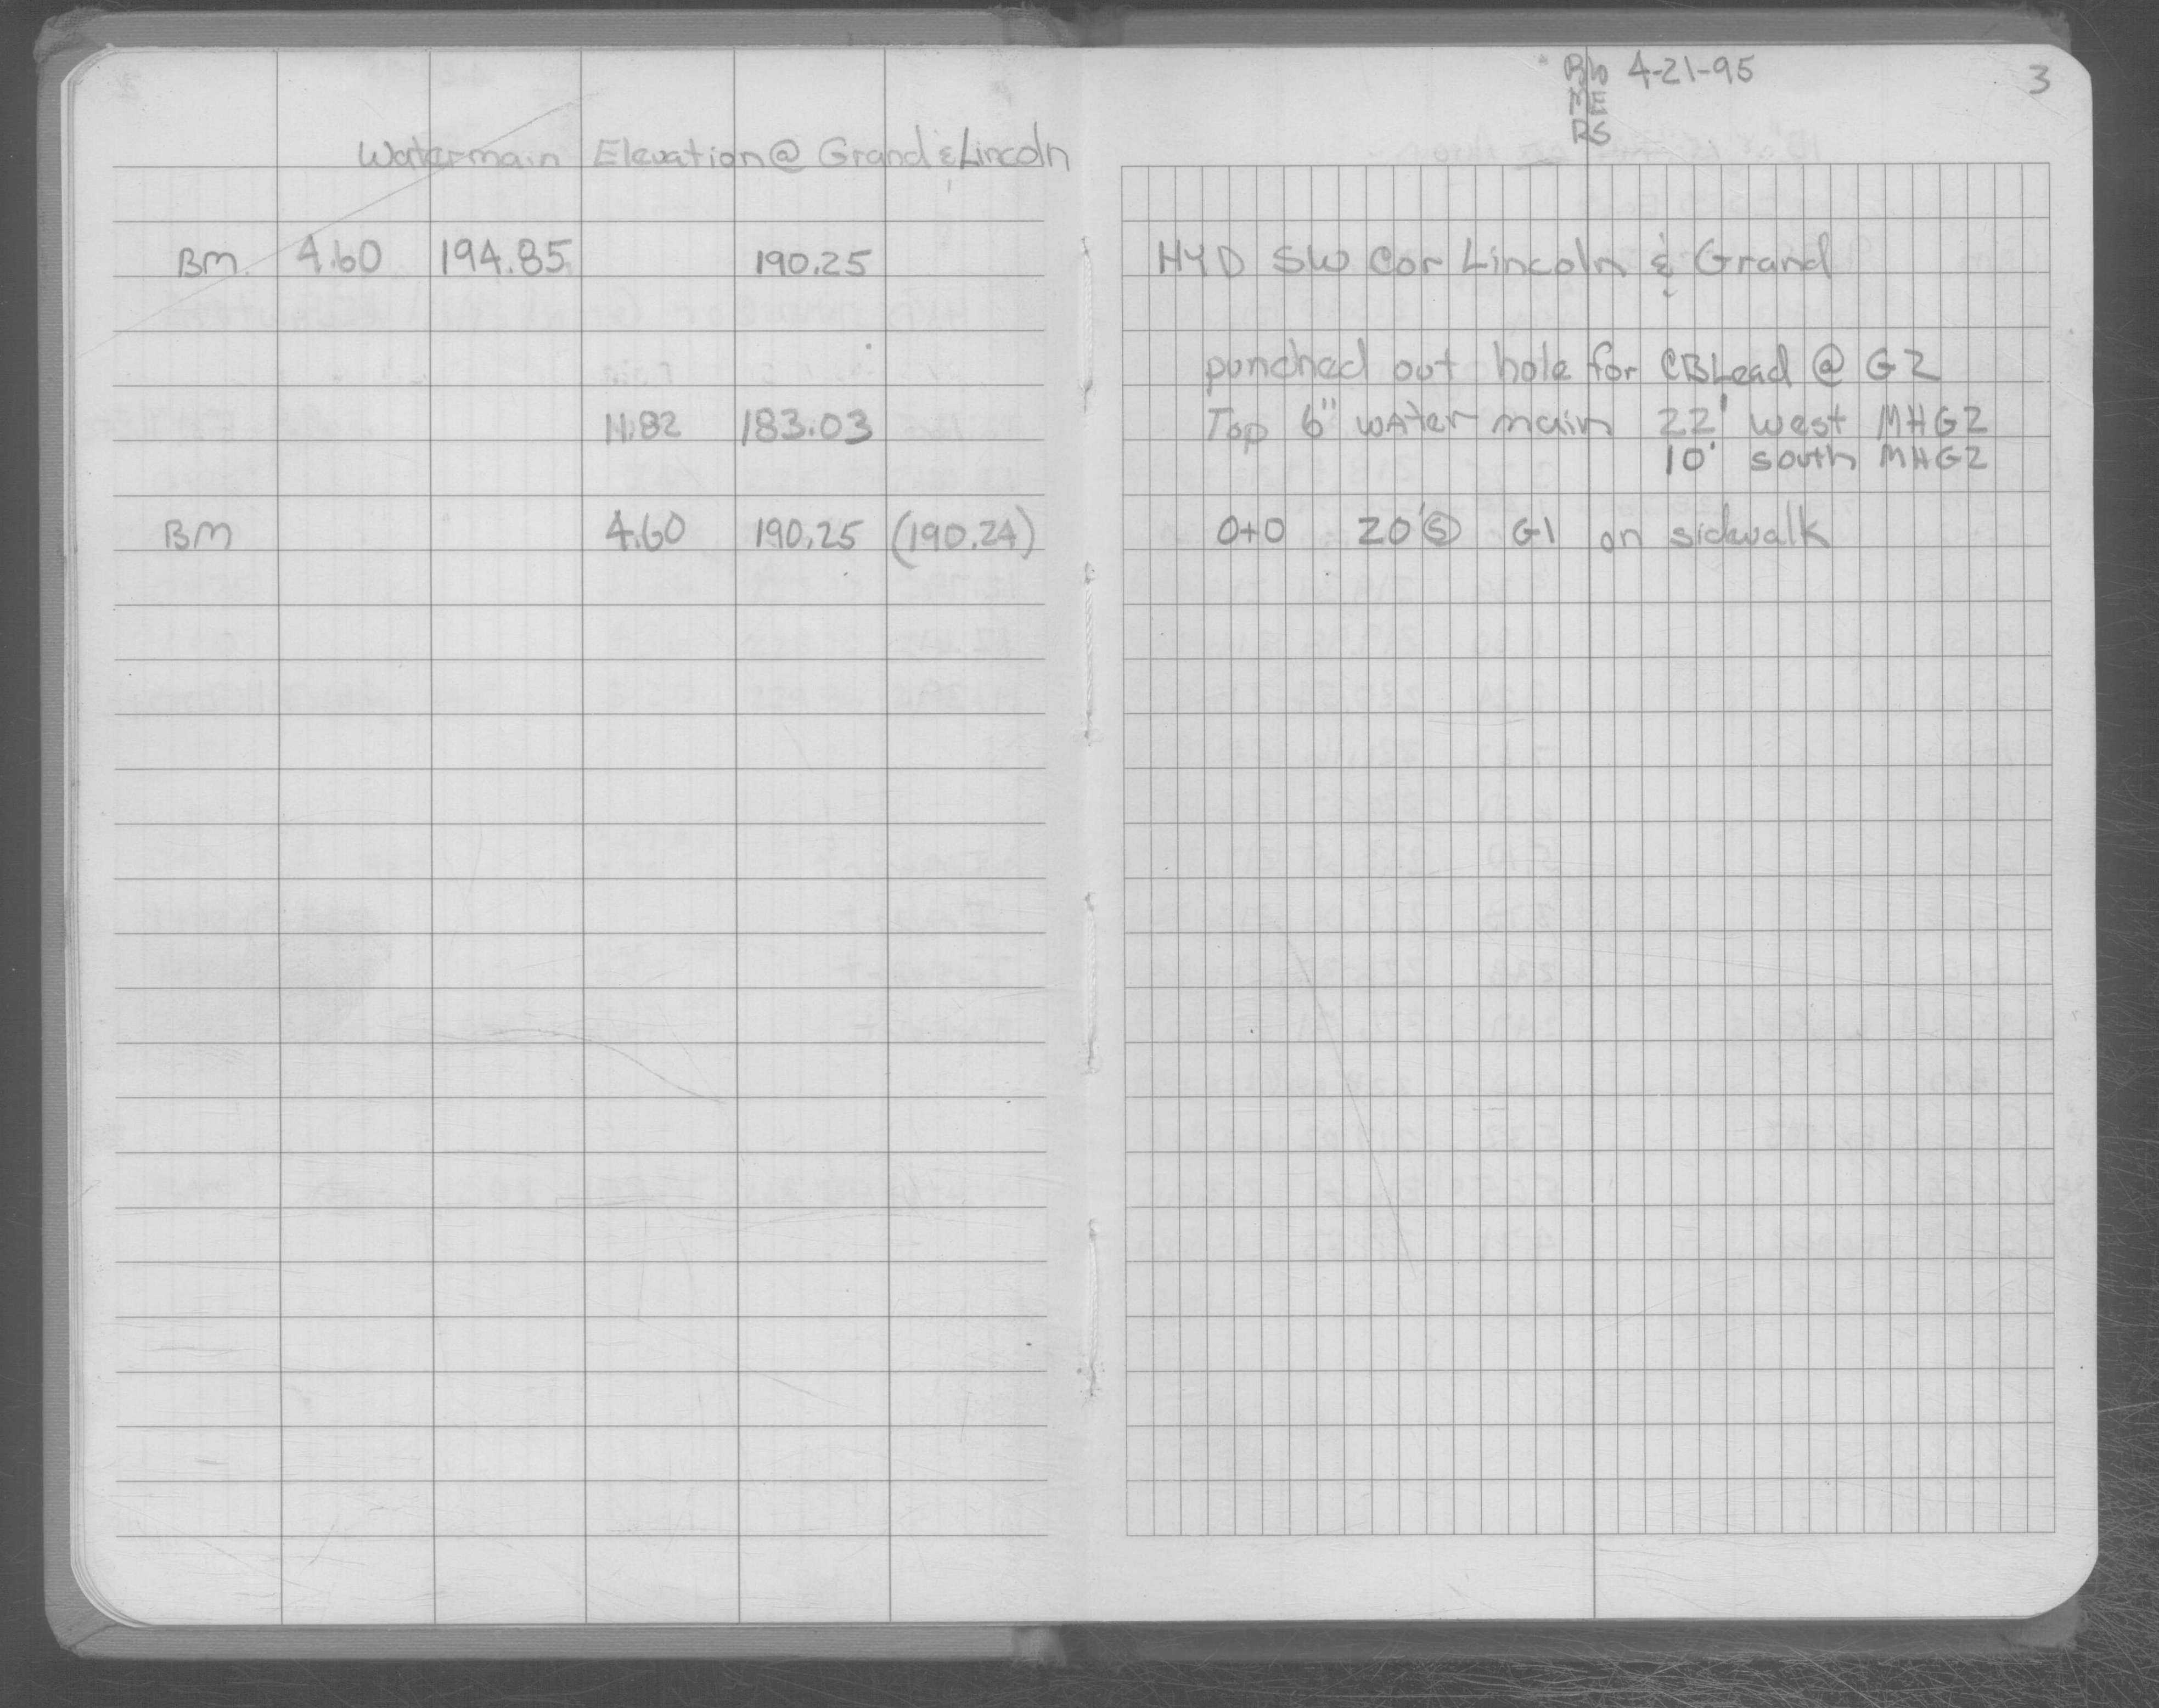 Watermain Elevation @ Grand & Lincoln
BM 4.60 194.85 190.25
11.82 183.03
BM 4.60 190.25 (190.24)
4-21-95
ME
RS
3
HYD SW Cor Lincoln & Grand
punched out hole for CB Lead @ G2
Top 6" water main 22' west MHG2
10' south MHG2
0+0 20' S G1 on sidwalk